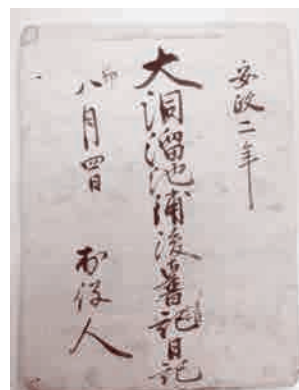 安政二年
大洞溜池浦浚普記日記
卯八月四日 村役人